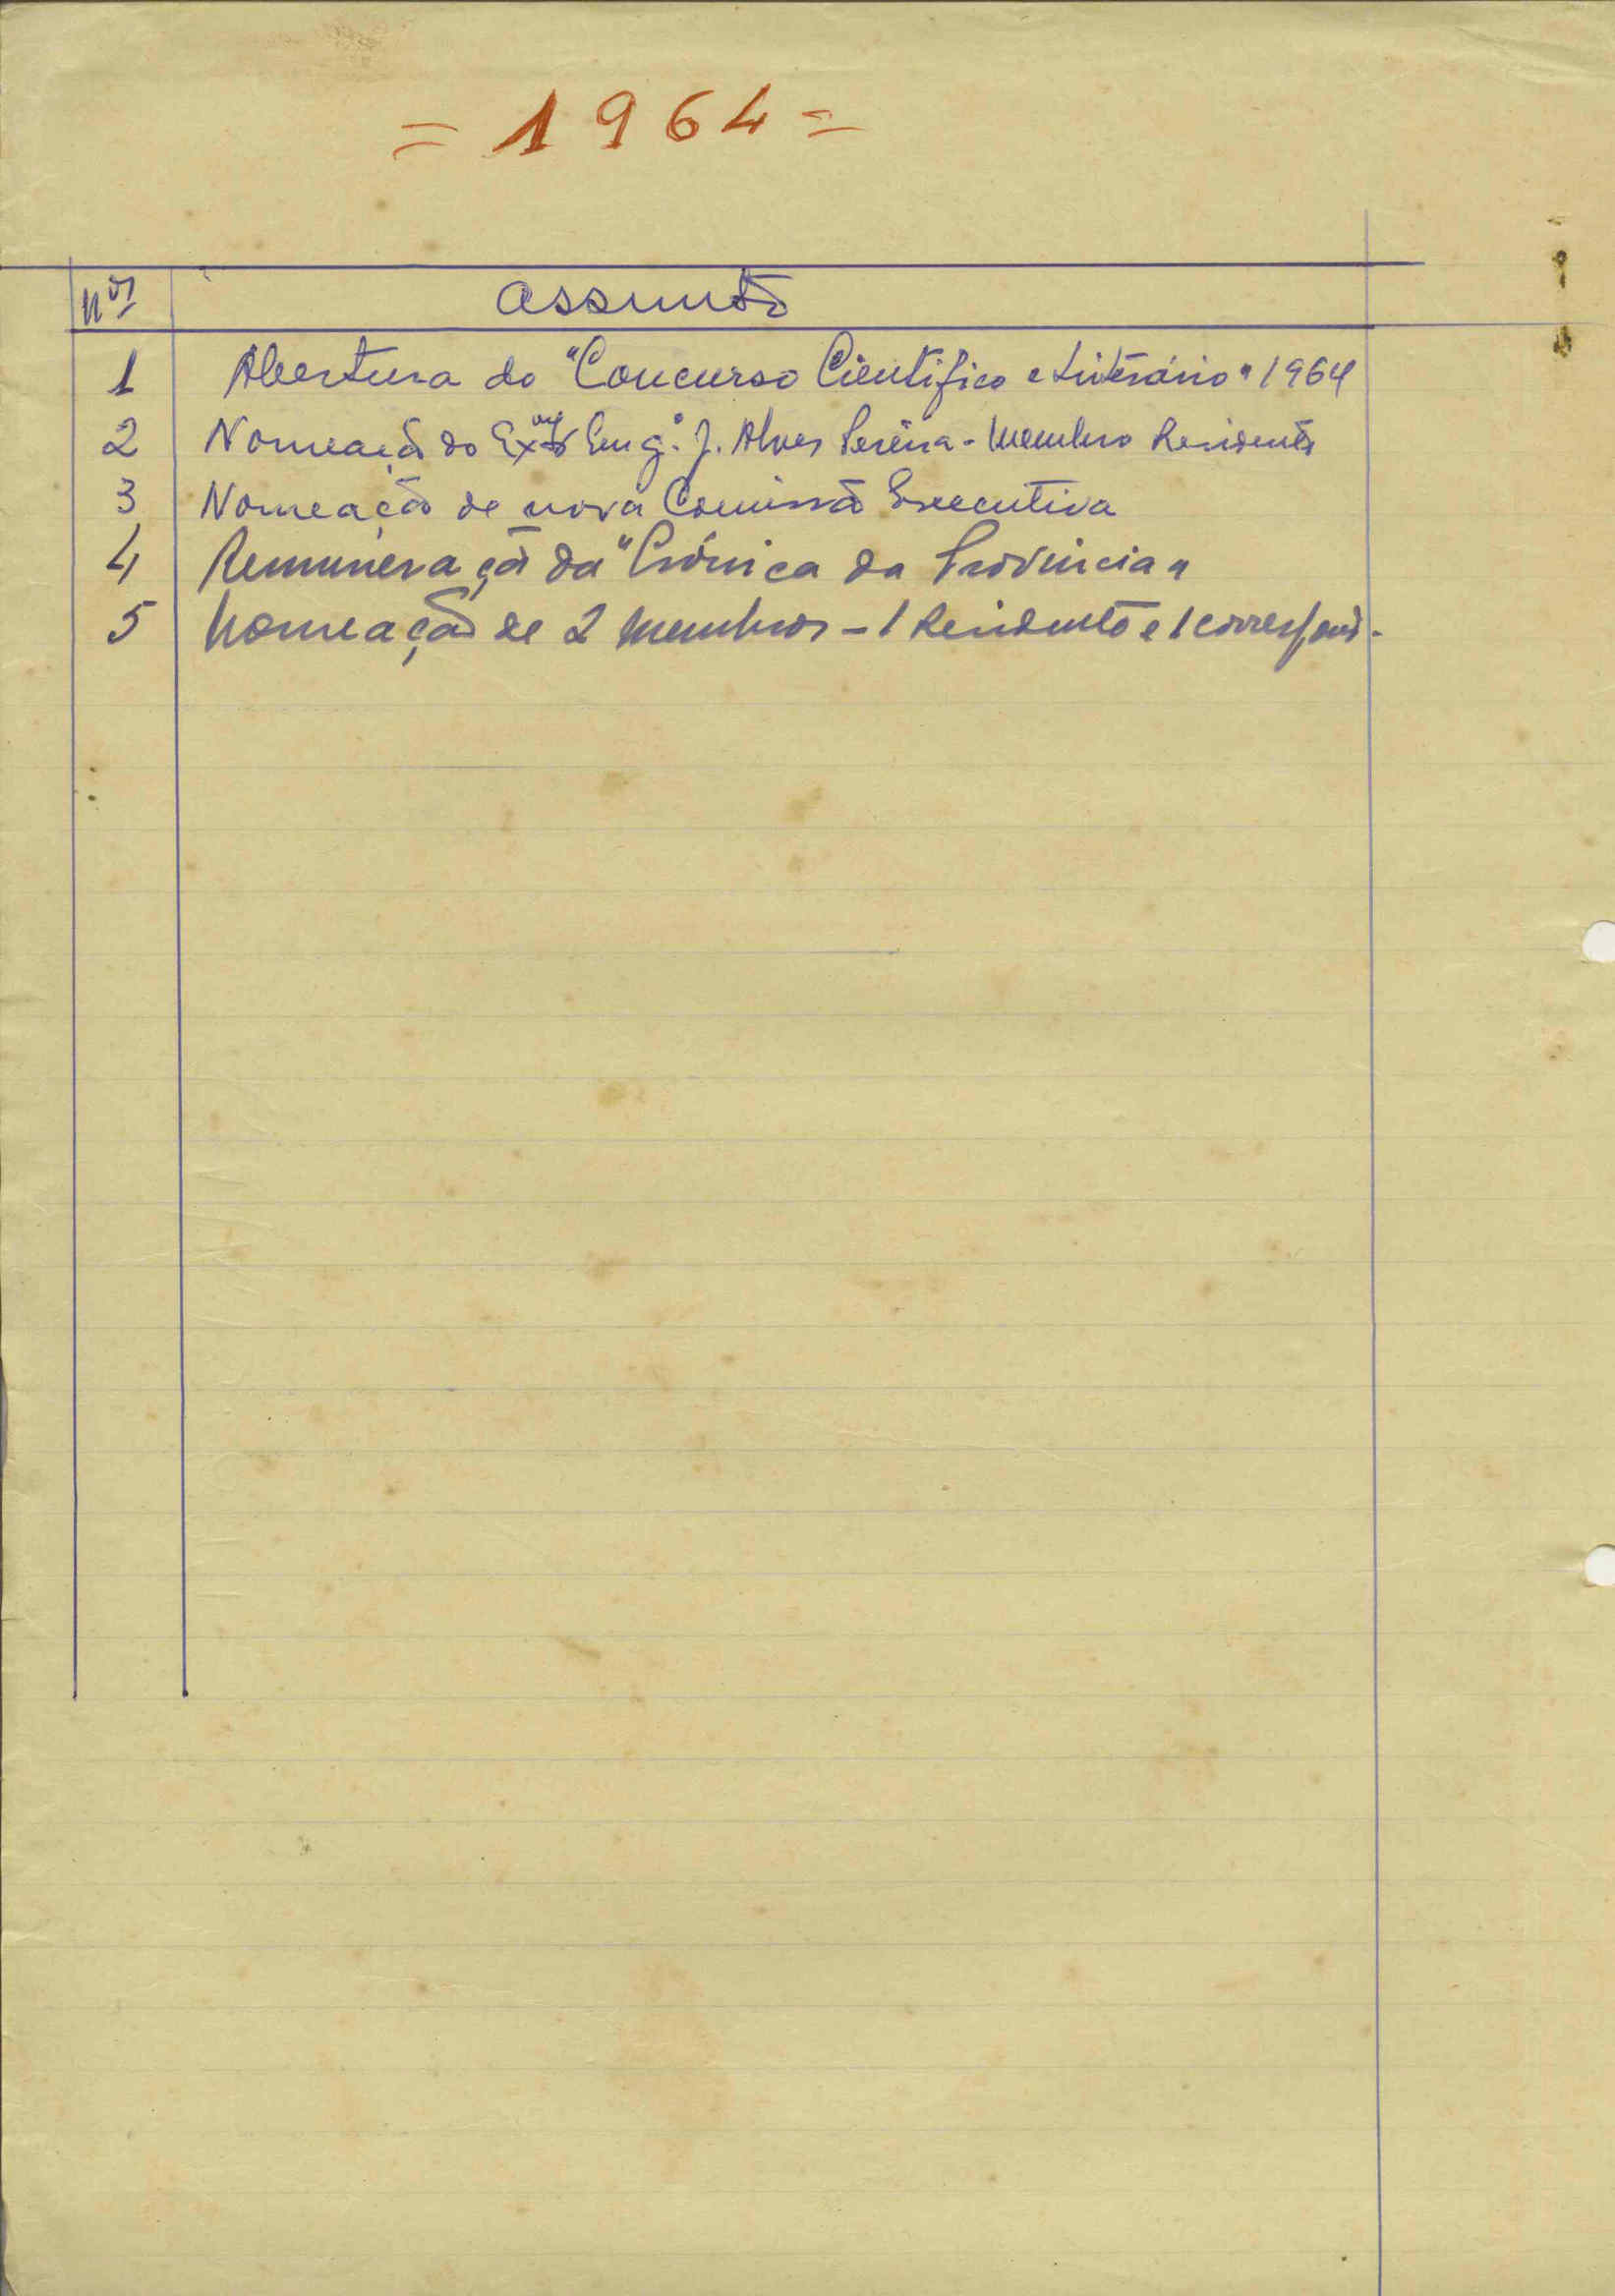 = 1964 =
Nos Assunto
1 Abertura do "Concurso Cientifico e Literário" 1964
2 Nomeação do Exmo Engº. J. Alves Pereira - Membro Residente
3 Nomeação de nova Comissão Executiva
4 Remuneração da "Crónica da Provincia"
5 Nomeação de 2 Membros - 1 Residente e 1 correspond.